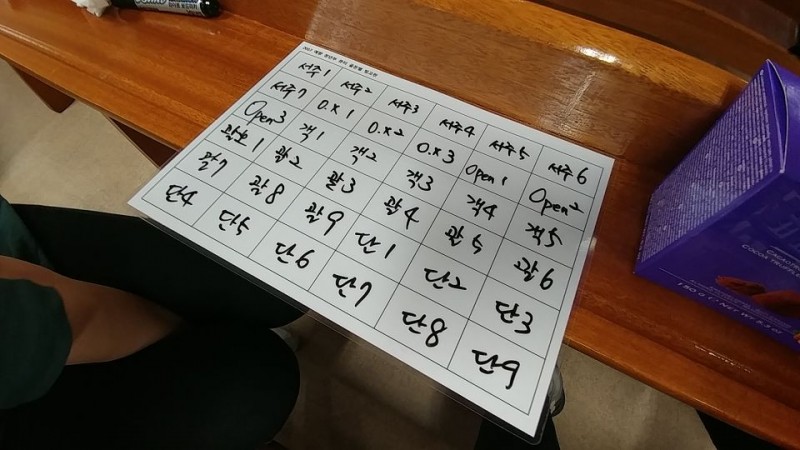 서주1 서주2 서주3 서주4 서주5 서주6
서주7 O.X 1 O.X 2 O.X 3 Open 1 Open 2
Open3 객1 객2 객3 객4 객5
괄호1 괄2 괄3 괄4 괄5 괄6
괄7 괄8 괄9 단1 단2 단3
단4 단5 단6 단7 단8 단9